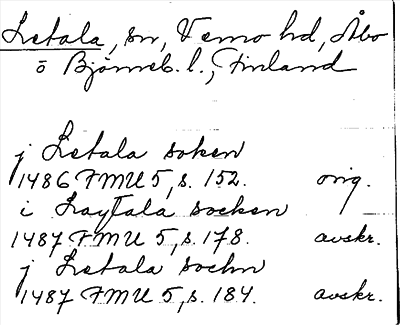 Letala, sn, Vemo hd, Åbo
o Björneb. l., Finland
j Letala soken
1486 FMU 5, s. 152. orig.
i Laytala socken
1487 FMU 5, s. 178. avskr.
j Letala sochn
1487 FMU 5, s. 184. avskr.